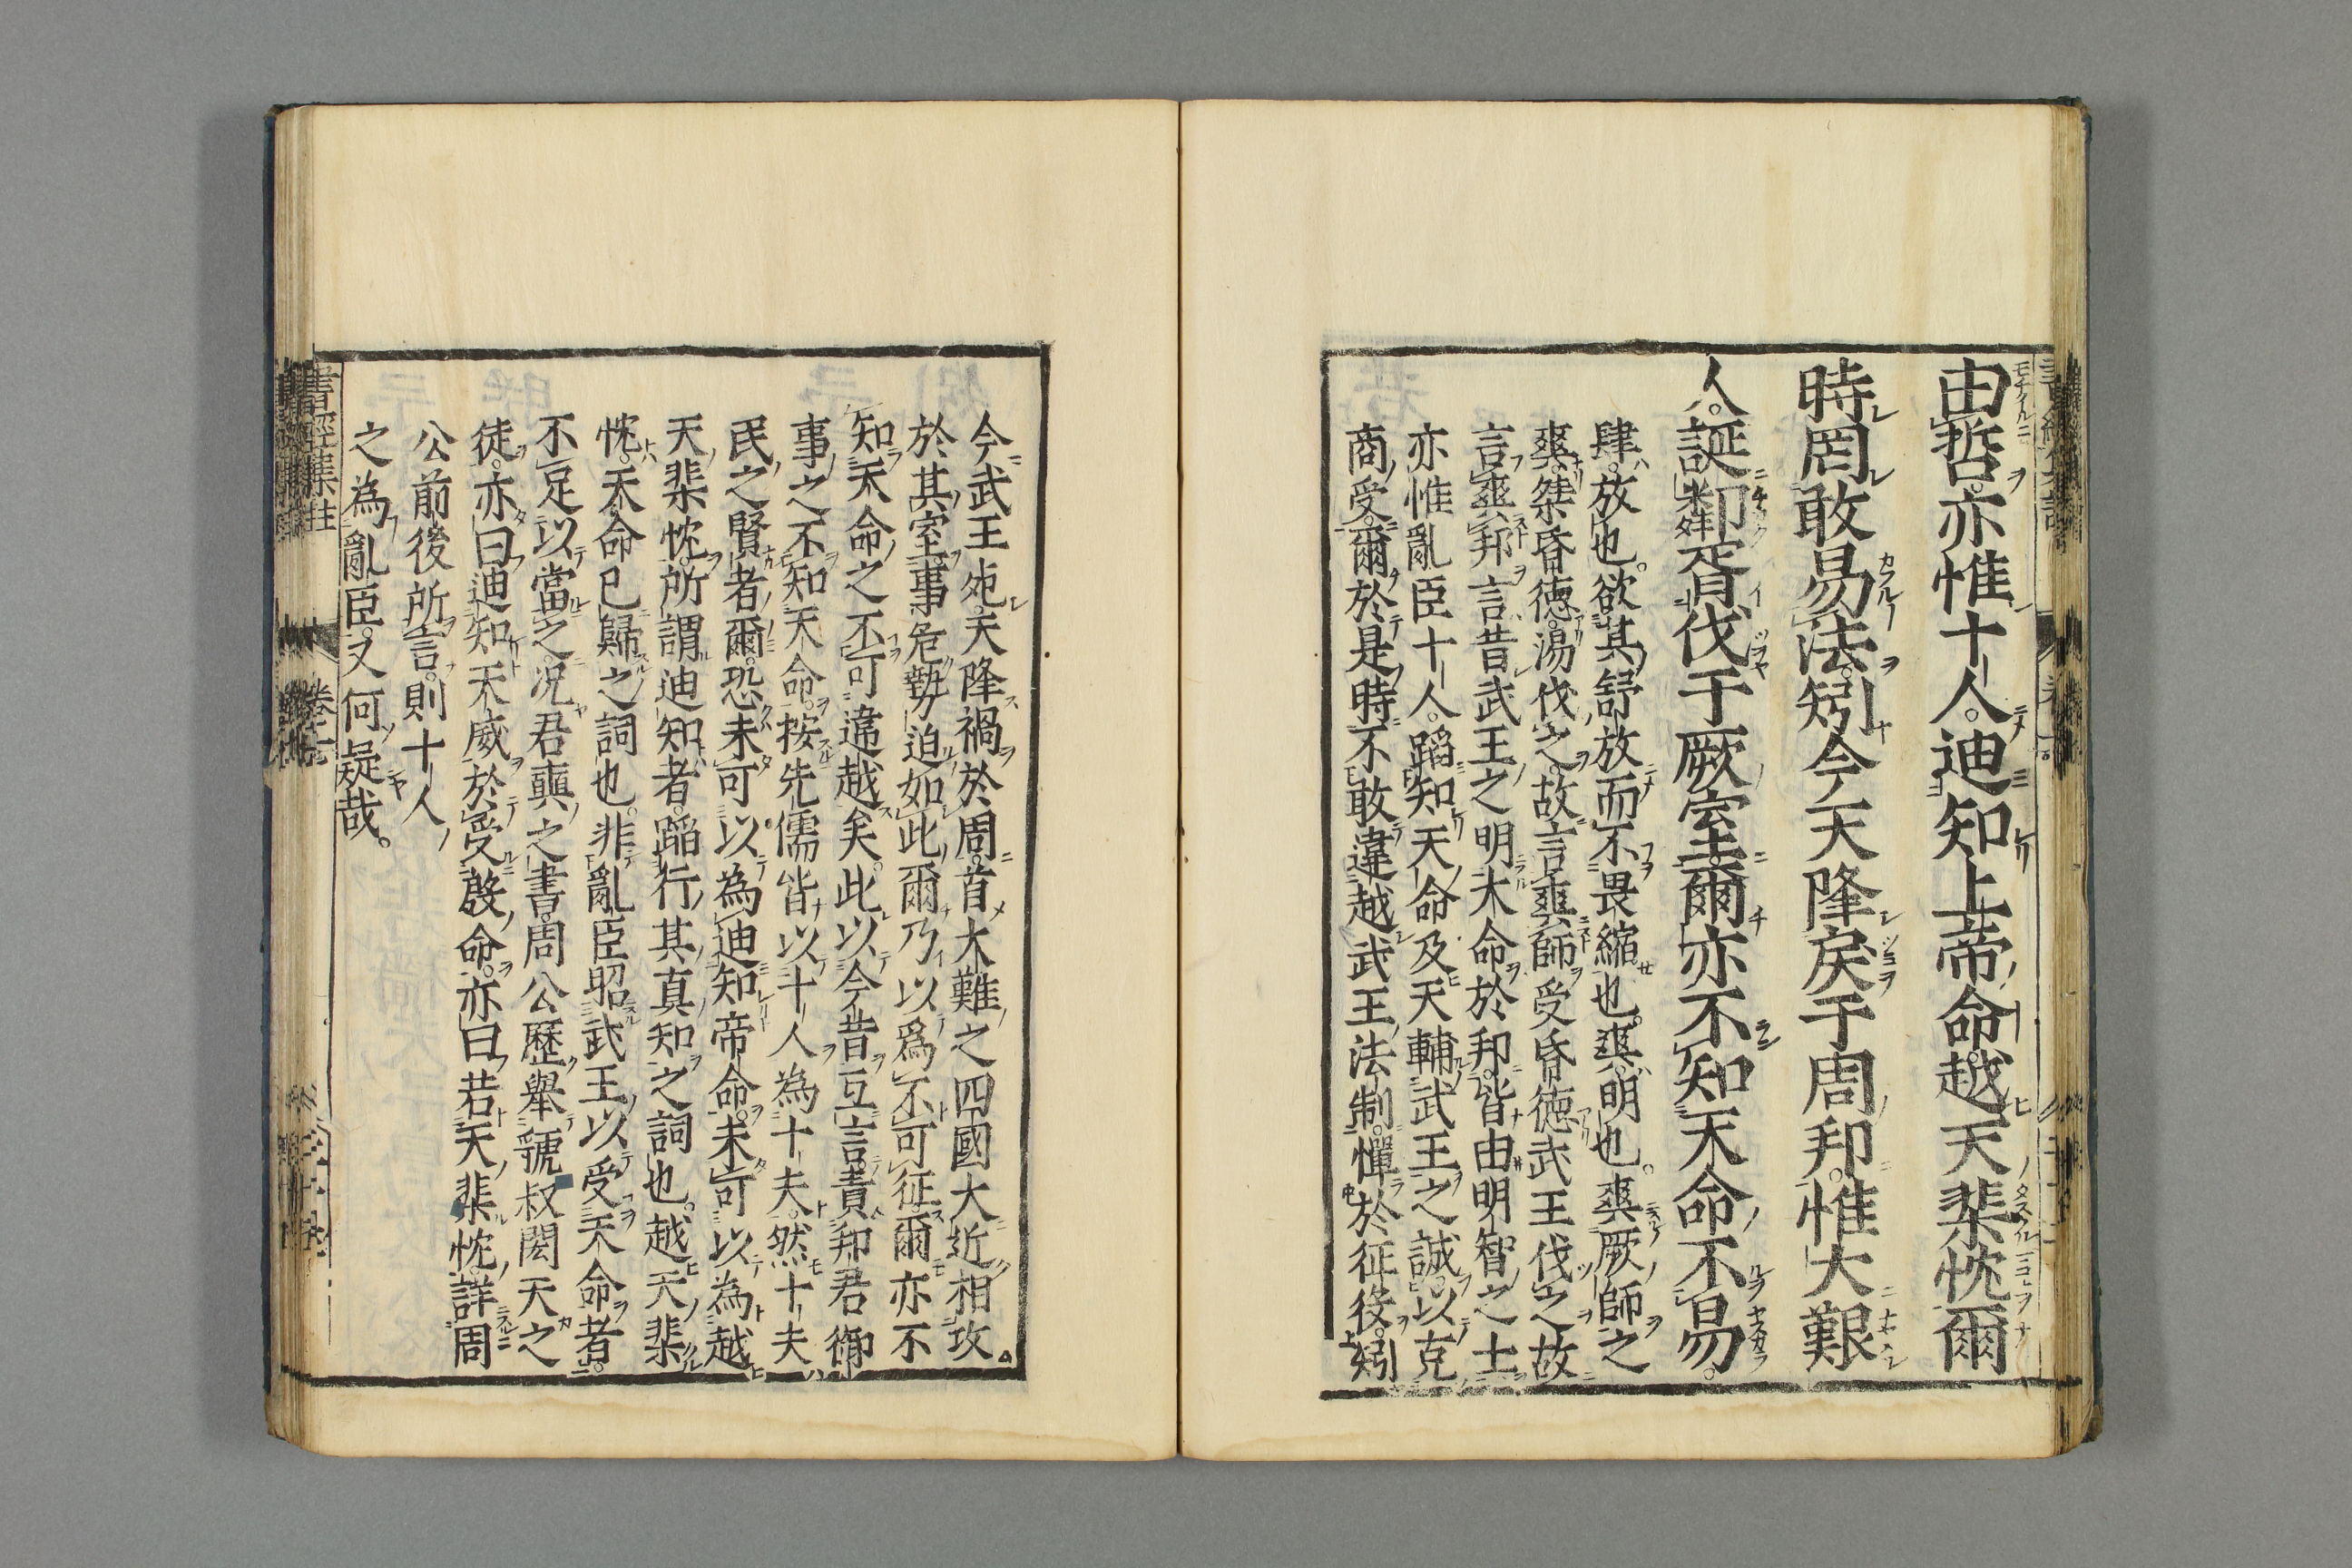 由哲亦惟十人。迪知上帝命越天棐忱爾
時罔敢易法矧今天降戾于周邦。惟大艱
人。誕鄰胥伐于厥室爾亦不知天命不易。
肆。放也。欲其舒放而不畏縮也。爽明也。爽厥師之
爽。桀昏德。湯伐之。故言爽師受昏德武王伐之故
言爽邦言昔武王之明大命於邦。皆由明智之士
亦惟亂臣十人。蹈知天命及天輔武王之誠。以克
商受。爾於是時不敢違越武王法制。憚於征役。矧
今武王死。天降禍於周。首大難之四國大近相攻
於其室。事危勢迫如此爾乃以爲不可征爾亦不
知天命之不可違越矣。此以今昔互言責邦君御
事之不知天命。按先儒皆以十人為十夫。然十夫
民之賢者爾。恐未可以為迪知帝命。未可以為越
天棐忱。所謂迪知者。蹈行其真知之詞也。越天棐
忱。天命已歸之詞也。非亂臣昭武王以受天命者。
不足以當之。况君奭之書。周公歷舉虢叔閎天之
徒。亦曰迪知天威於受殷命。亦曰若天棐忱。詳周
公前後所言。則十人
之為亂臣。又何疑哉。
書經集註